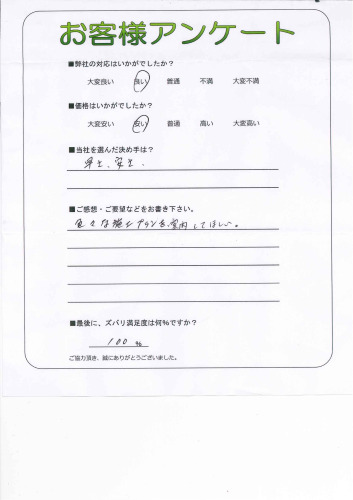 お客様アンケート
■弊社の対応はいかがでしたか?
大変良い 良い 普通 不満 大変不満
■価格はいかがでしたか?
大変安い 安い 普通 高い 大変高い
■当社を選んだ決め手は?
早さ、安さ、
■ご感想・ご要望などをお書き下さい。
色々な施工プランを案内してほしい。
■最後に、ズバリ満足度は何%ですか?
100 %
ご協力頂き、誠にありがとうございました。